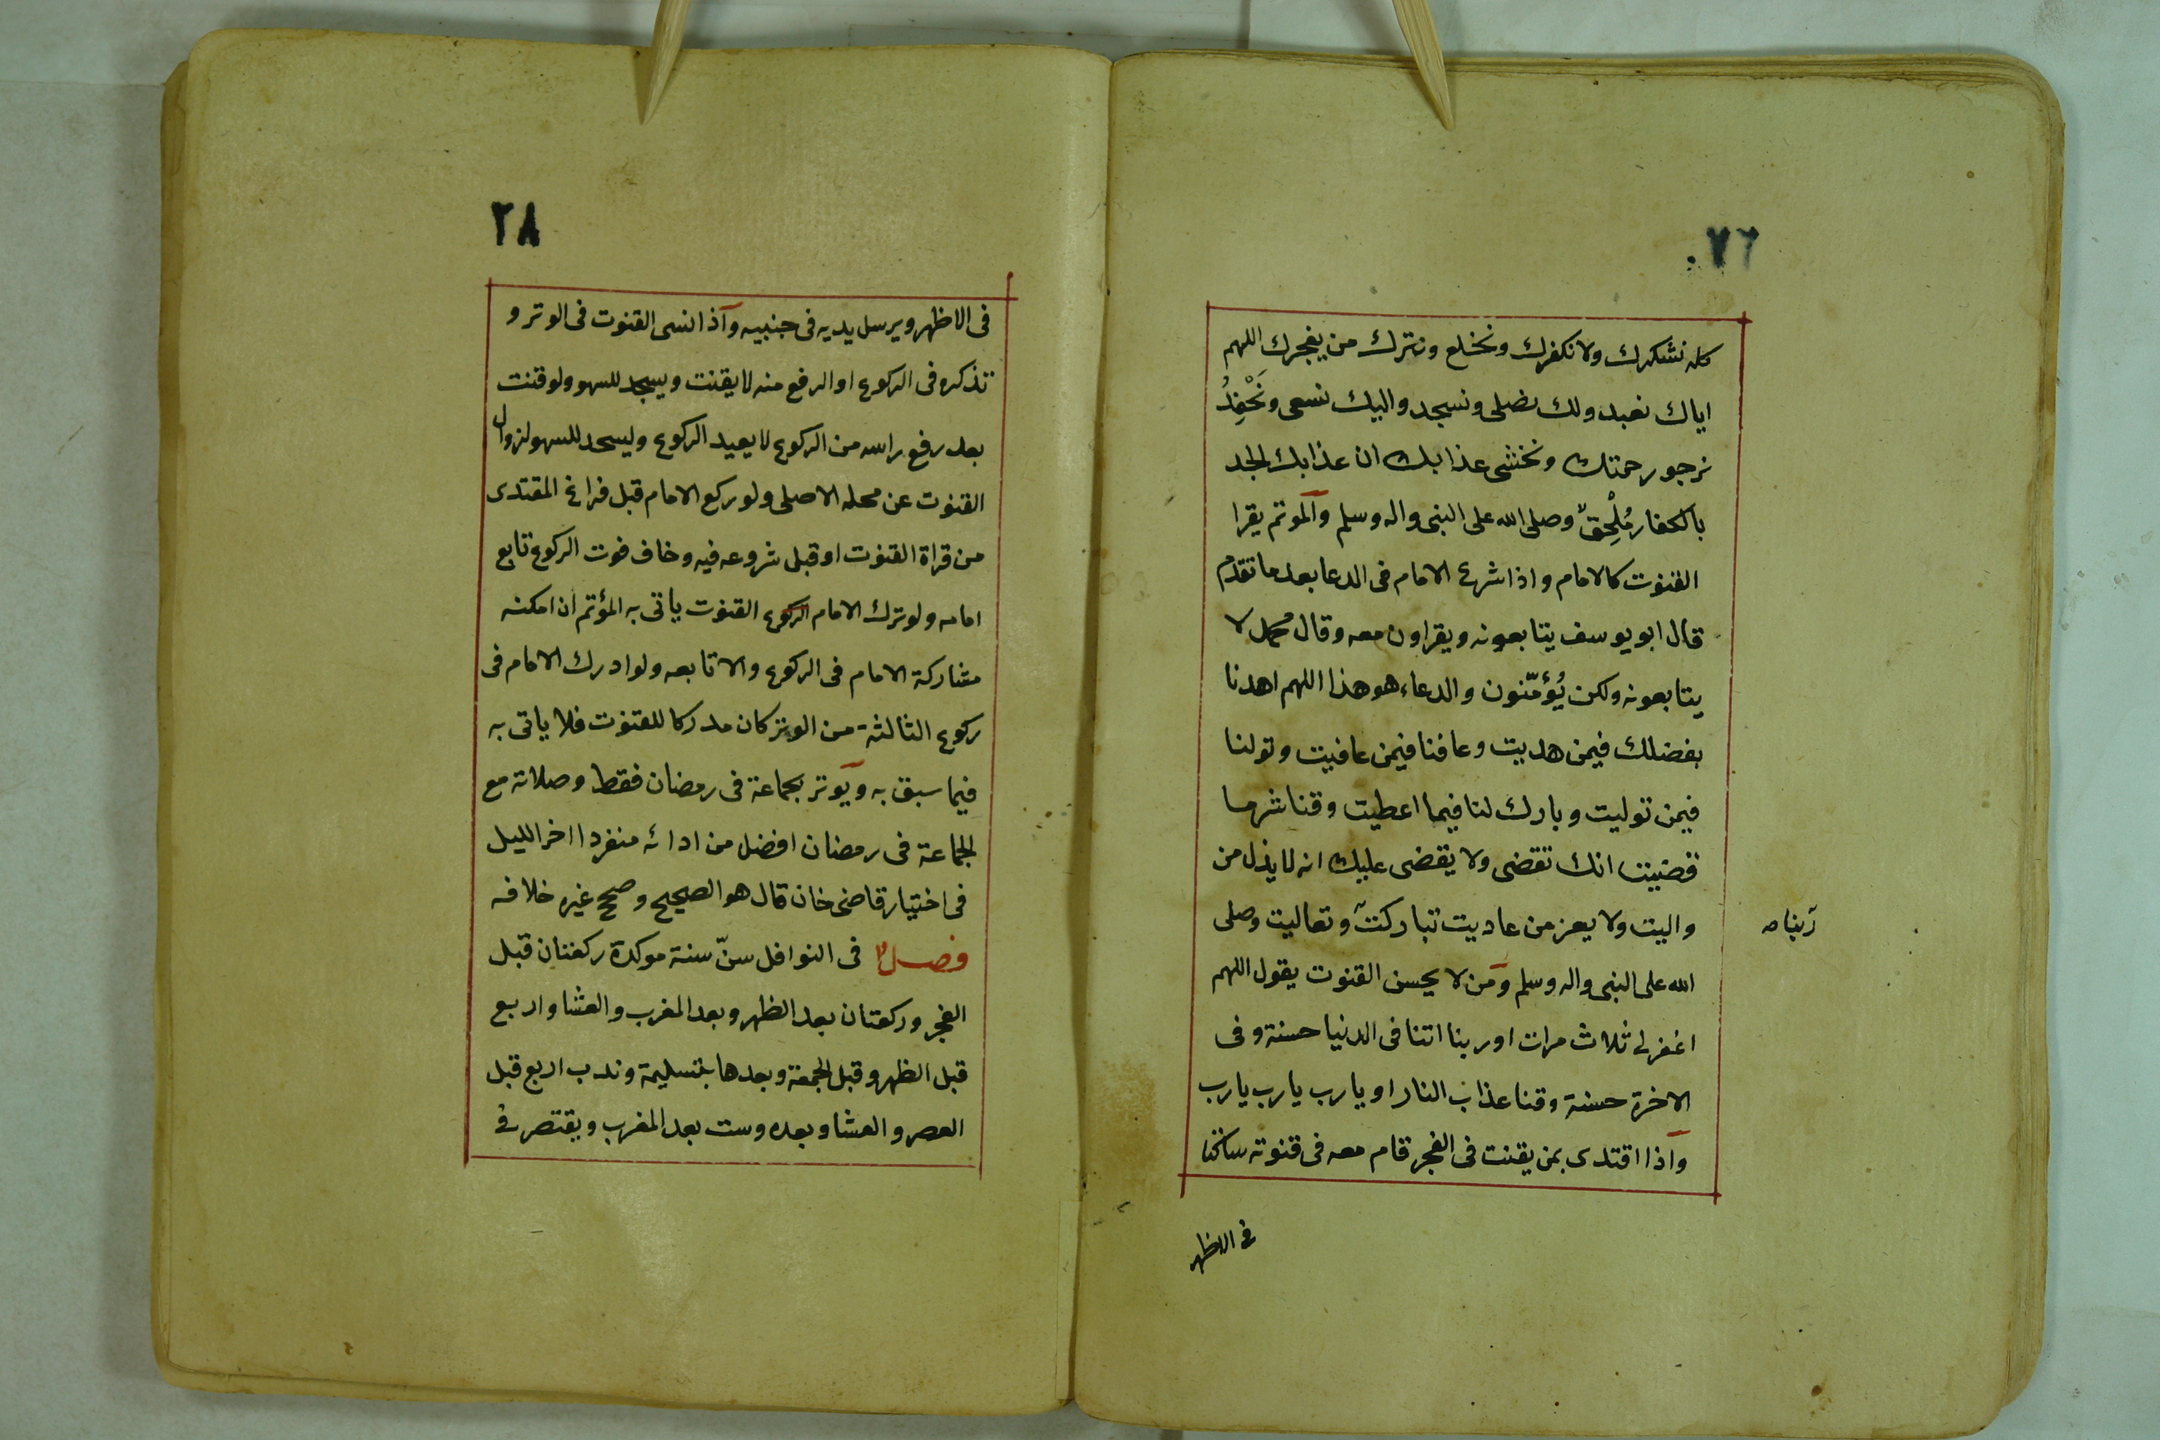 ٧٦
كله نشكرك ولا نكفرك ونخلع ونترك من يفجرك اللهم
اياك نعبد ولك نصلى ونسجد واليك نسعى ونَحْفِدُ
نرجو رحمتك ونخشى عذابك ان عذابك الجد
بالكفار مُلْحِقٌ وصلى الله على النبى واله وسلم والموتم يقرا
القنوت كالامام واذا شرع الامام فى الدعا بعد ما تقدم
قال ابو يوسف يتابعونه ويقراون معه وقال محمد لا
يتابعونه ولكن يُؤمّنون والدعاء هو هذا اللهم اهدنا
بفضلك فيمن هديت وعافنا فيمن عافيت وتولنا
فيمن توليت وبارك لنا فيما اعطيت وقنا شر ما
قضيت انك تقضى ولا يقضى عليك انه لا يذل من
واليت ولا يعز من عاديت تباركت وتعاليت وصلى
ربنا صه
الله على النبى واله وسلم ومن لا يحسن القنوت يقول اللهم
اغفر لى ثلاث مرات او ربنا اتنا فى الدنيا حسنة وفى
الاخرة حسنة وقنا عذاب النار او يا رب يا رب يا رب
واذا اقتدى بمن يقنت فى الفجر قام معه فى قنوته ساكتا
فى الاظهر
٢٨
فى الاظهر ويرسل يديه فى جنبيه واذا نسى القنوت فى الوتر و
تذكره فى الركوع او الرفع منه لا يقنت ويسجد للسهو ولو قنت
بعد رفع راسه من الركوع لا يعيد الركوع وليسجد للسهو لزوال
القنوت عن محله الاصلى ولو ركع الامام قبل فراغ المقتدى
من قراة القنوت او قبل شروعه فيه وخاف فوت الركوع تابع
امامه ولو ترك الامام الركوع القنوت ياتى به المؤتم ان امكنه
مشاركة الامام فى الركوع والا تابعه ولو ادرك الامام فى
ركوع الثالثة من الوتر كان مدركا للقنوت فلا ياتى به
فيما سبق به ويوتر بجماعة فى رمضان فقط وصلاته مع
الجماعة فى رمضان افضل من ادائه منفردا اخر الليل
فى اختيار قاضى خان قال هو الصحيح وصحح غيره خلافه
فصلٌ فى النوافل سنّ سنة موكدة ركعتان قبل
الفجر وركعتان بعد الظهر وبعد المغرب والعشا واربع
قبل الظهر وقبل الجمعة وبعدها بتسليمة وندب اربع قبل
العصر والعشا وبعده وست بعد المغرب ويقتصر فى